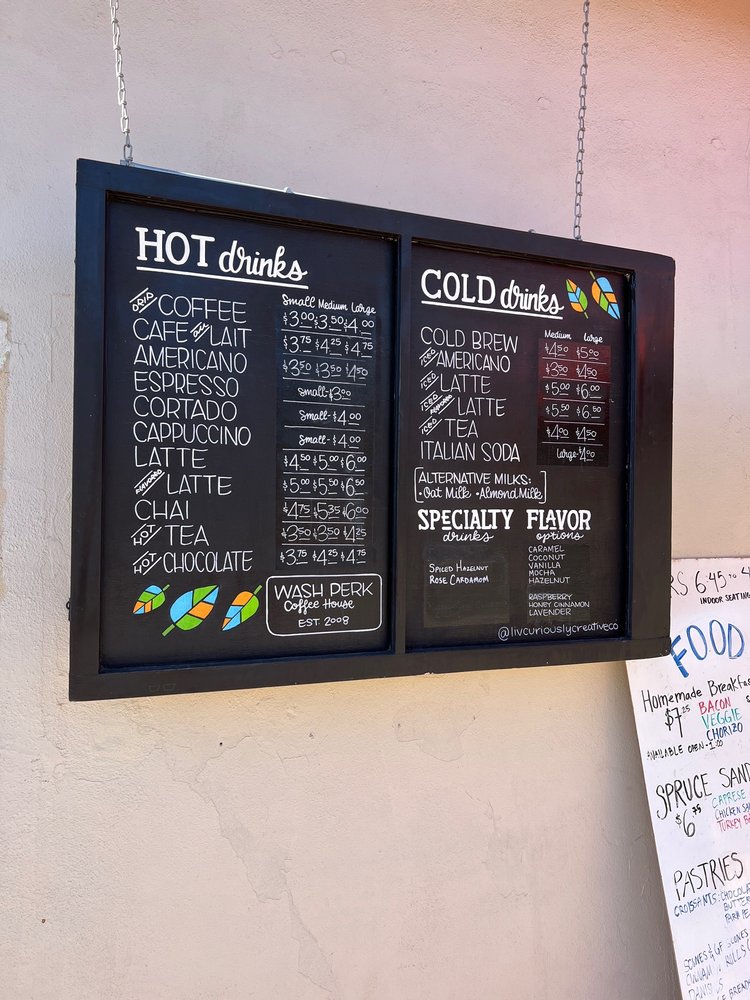 HOT drinks
Small Medium Large
DRIP COFFEE $3.00 $3.50 $4.00
CAFE AU LAIT $3.75 $4.25 $4.75
AMERICANO $3.50 $3.50 $4.50
ESPRESSO Small-$3.00
CORTADO Small-$4.00
CAPPUCCINO Small-$4.00
LATTE $4.50 $5.00 $6.00
FLAVORED LATTE $5.00 $5.50 $6.50
CHAI $4.75 $5.35 $6.00
HOT TEA $3.50 $3.50 $4.25
HOT CHOCOLATE $3.75 $4.25 $4.75
WASH PERK
Coffee House
EST. 2008
COLD drinks
Medium Large
COLD BREW $4.50 $5.00
ICED AMERICANO $3.50 $4.50
ICED LATTE $5.00 $6.00
ICED FLAVORED LATTE $5.50 $6.50
ICED TEA $4.00 $4.50
ITALIAN SODA Large-$4.00
ALTERNATIVE MILKS:
•Oat Milk •Almond Milk
SPECIALTY
drinks
SPICED HAZELNUT
ROSE CARDAMOM
FLAVOR
options
CARAMEL
COCONUT
VANILLA
MOCHA
HAZELNUT
RASPBERRY
HONEY CINNAMON
LAVENDER
@livcuriouslycreativeco
RS 6:45 TO 4
INDOOR SEATING
FOOD
Homemade Breakfas
$7.25 BACON
VEGGIE
CHORIZO
AVAILABLE OPEN-1:00
SPRUCE SAND
$6.75 CAPRESE
CHICKEN SA
TURKEY B
PASTRIES
CROISSANTS: CHOCOLA
BUTTER
SCONES & GF SCONES
ROLLS